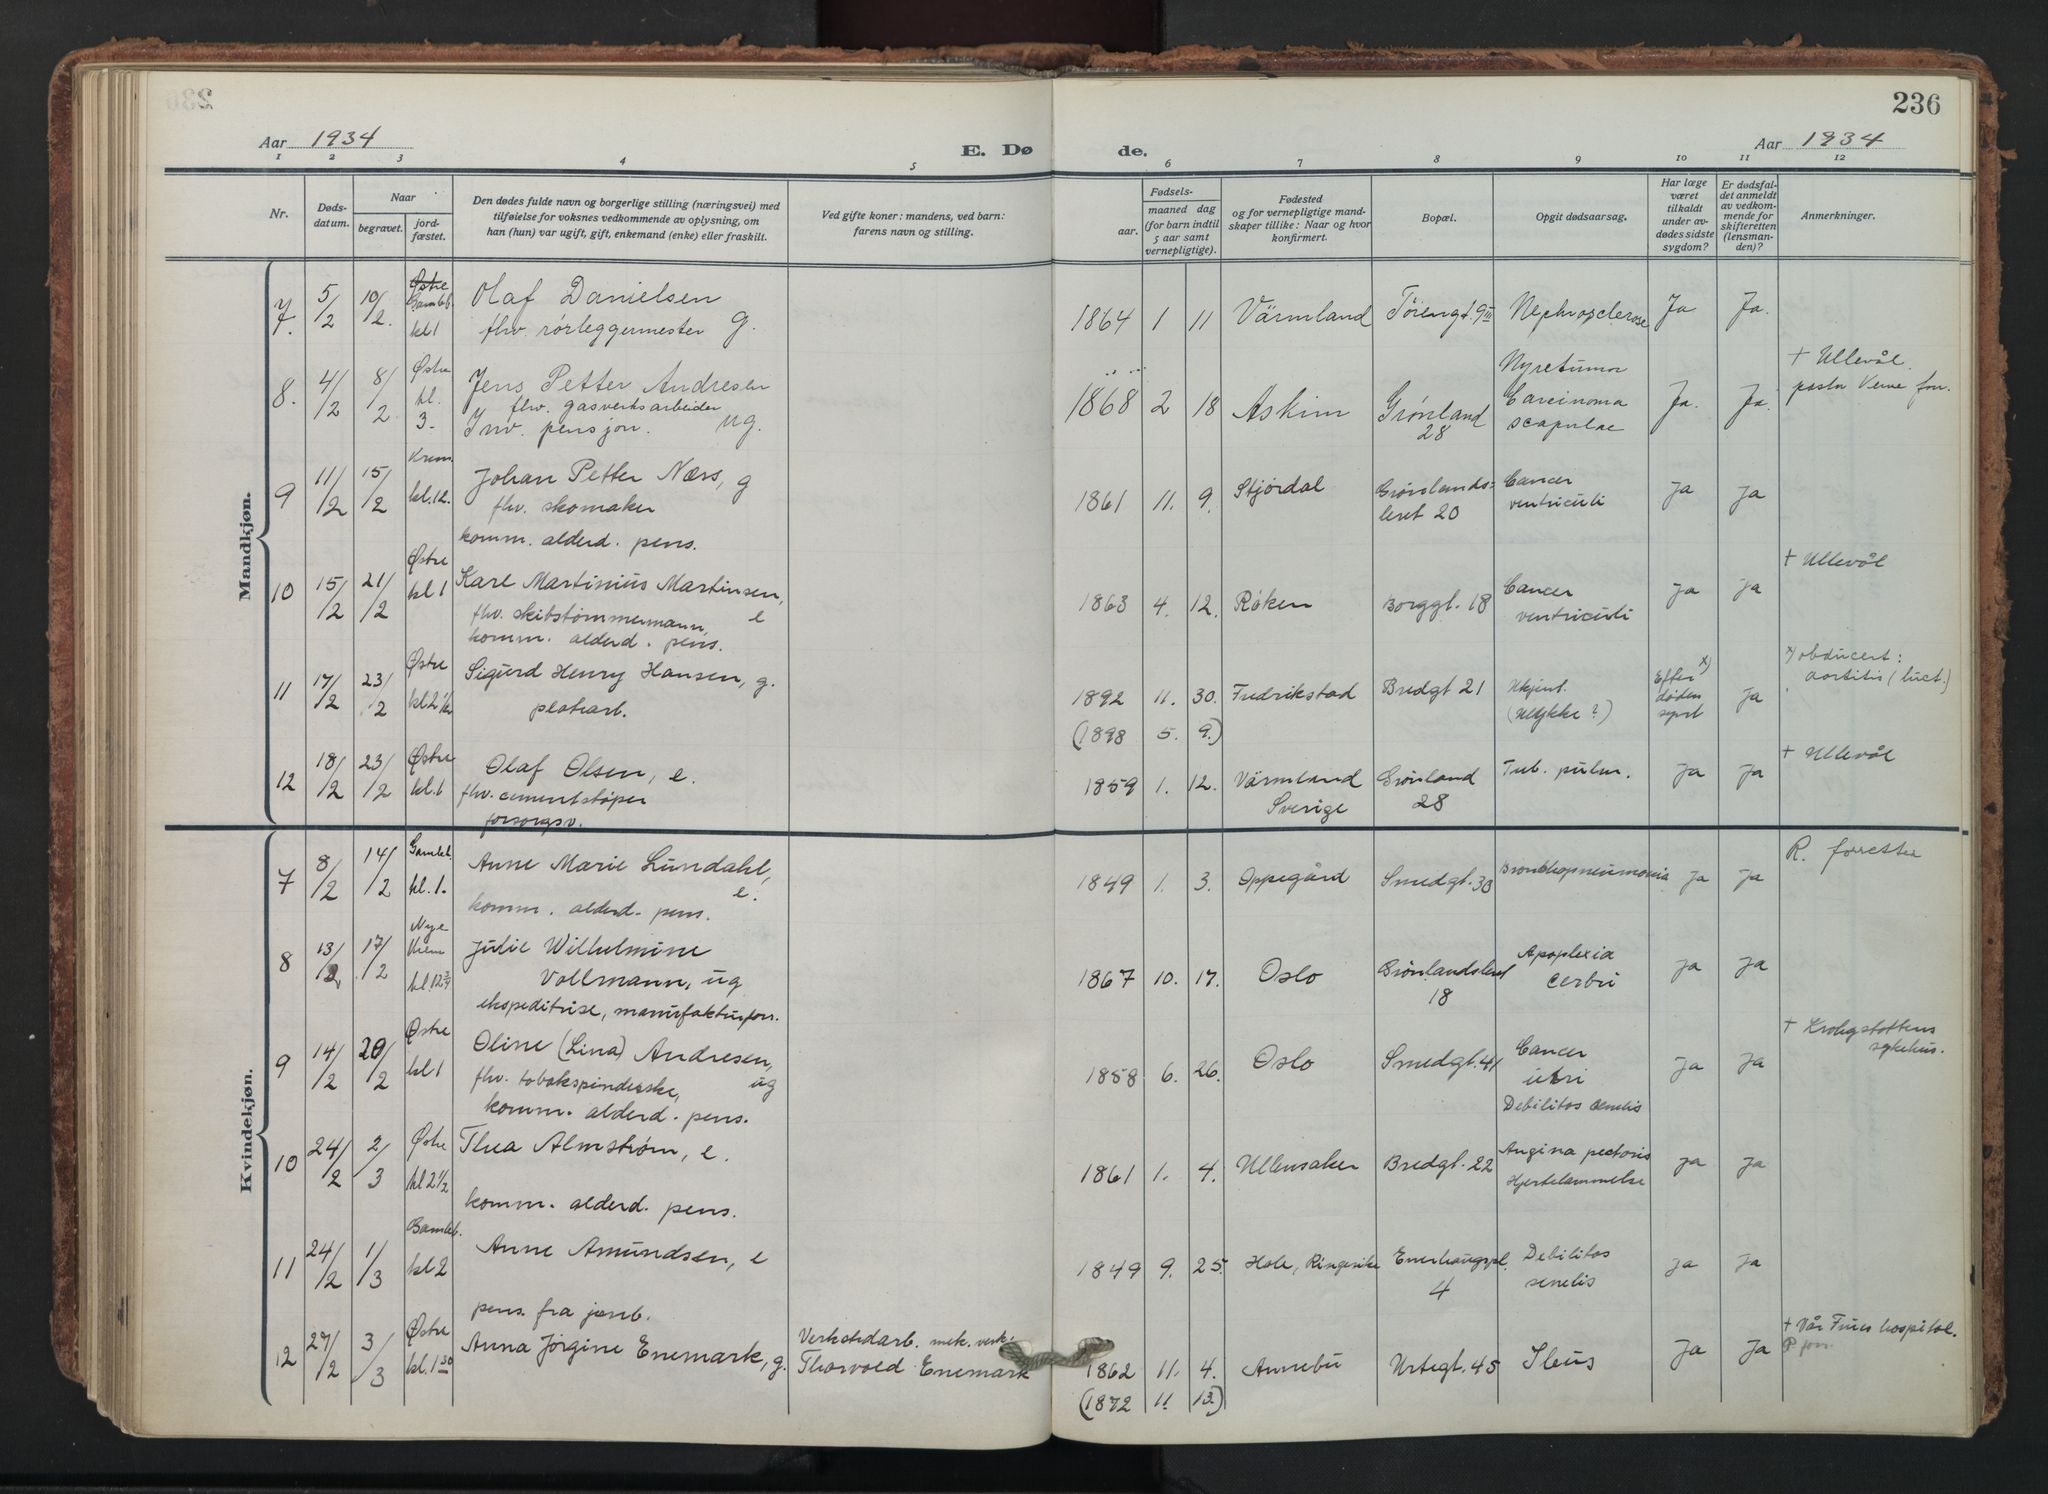 236
Aar 1934
E. Dø de.
Aar 1934
1 2 3 4 5 6 7 8 9 10 11 12
Nr.
Døds-
datum.
Naar
begravet.
jord-
fæstet.
Den dødes fulde navn og borgerlige stilling (næringsvei) med
tilføielse for voksnes vedkommende av oplysning, om
han (hun) var ugift, gift, enkemand (enke) eller fraskilt.
Ved gifte koner: mandens, ved barn:
farens navn og stilling.
Fødsels-
aar.
maaned dag
(for barn indtil
5 aar samt
vernepligtige).
Fødested
og for vernepligtige mand-
skaper tillike: Naar og hvor
konfirmert.
Bopæl.
Opgit dødsaarsag.
Har læge
været
tilkaldt
under av-
dødes sidste
sygdom?
Er dødsfal-
det anmeldt
av vedkom-
mende for
skifteretten
(lensman-
den)?
Anmerkninger.
Mandkjøn.
7. 5/2 10/2. Østre Gamleb. kl 1 Olaf Danielsen
fhv. rørleggermester g.
1864 1 11 Värmland Tøiengt. 9 III Nephrosclerose Ja Ja.
8. 4/2 8/2. Østre kl. 3. Jens Petter Andresen
fhv. gasverksarbeider
Inv. pensjon. ug.
1868 2 18 Askim Grønland 28
Nyretumor
Carcinoma
scapulae
Ja. Ja.
+ Ullevål.
pastor
9 11/2 15/2 Krem. kl. 12. Johan Petter Næss, g
fhv. skomaker
komm. alderd. pens.
1861 11. 9. Stjørdal Grønlands-
leret 20
Cancer
ventriculi
Ja Ja
10 15/2 21/2 Østre kl 1 Karl Martinius Martinsen,
fhv. skibstømmermann, e
komm. alderd. pens.
1863 4. 12. Røken Borggt. 18
Cancer
ventriculi
Ja Ja
+ Ullevål
11 17/2 23/2 Østre kl 2 Sigurd Henry Hansen, g.
platearb.
1892 11. 30. Fredrikstad Bredgt 21
Ukjent.
(Ulykke?)
Efter x)
døden
synt
Ja
x) obducert:
aortitis (luet.)
(1898 5. 9.)
12 18/2 23/2 Østre kl. 1 Olaf Olsen, e.
fhv. cementstøper
forsorgsv.
1859 1. 12. Värmland
Sverige
Grønland
28
Tub. pulm. Ja Ja
+ Ullevål
Kvindekjøn.
7 8/2 14/2 Gamleb. kl. 1. Anne Marie Lundahl,
e.
komm. alderd. pens.
1849 1. 3. Oppegård Smedgt. 30 Bronchopneumonia Ja Ja
R. forretter
8 13/2 17/2 Nye Krem kl. 12 3/4 Julie Wilhelmine
Vollmann, ug
ekspeditrise, manufakturforr.
1867 10. 17. Oslo Grønlandsleret
18
Apoplexia
cerbri
Ja Ja
9 14/2 20/2 Østre kl 1 Oline (Lina) Andresen,
fhv. tobakspinderske, ug
komm. alderd. pens.
1858 6. 26. Oslo Smedgt. 41
Cancer
uteri
Debilitas senelis
Ja Ja
+ Krohgstøttens
sykehus.
10 24/2 2/3 Østre kl 2 1/2 Thea Almstrøm, e.
komm. alderd. pens.
1861 1. 4. Ullensaker Bredgt. 22
Angina pectoris
Hjertelammelse
Ja Ja
11 24/2 1/3 Gamleb. kl 2 Anne Amundsen, e
pens. fra jernb.
1849 9. 25. Hole, Ringerike Enerhaugpl.
4
Debilitas
senelis
Ja Ja
12 27/2 3/3 Østre kl. 1 30 Anna Jørgine Enemark, g.
Verkstedarb. mek. verk.
Thorvald Enemark
1862 11. 4. Annebu Urtegt. 45 Ileus Ja Ja
+ Vår Frues hospital.
P forr.
(1872 11 13.)